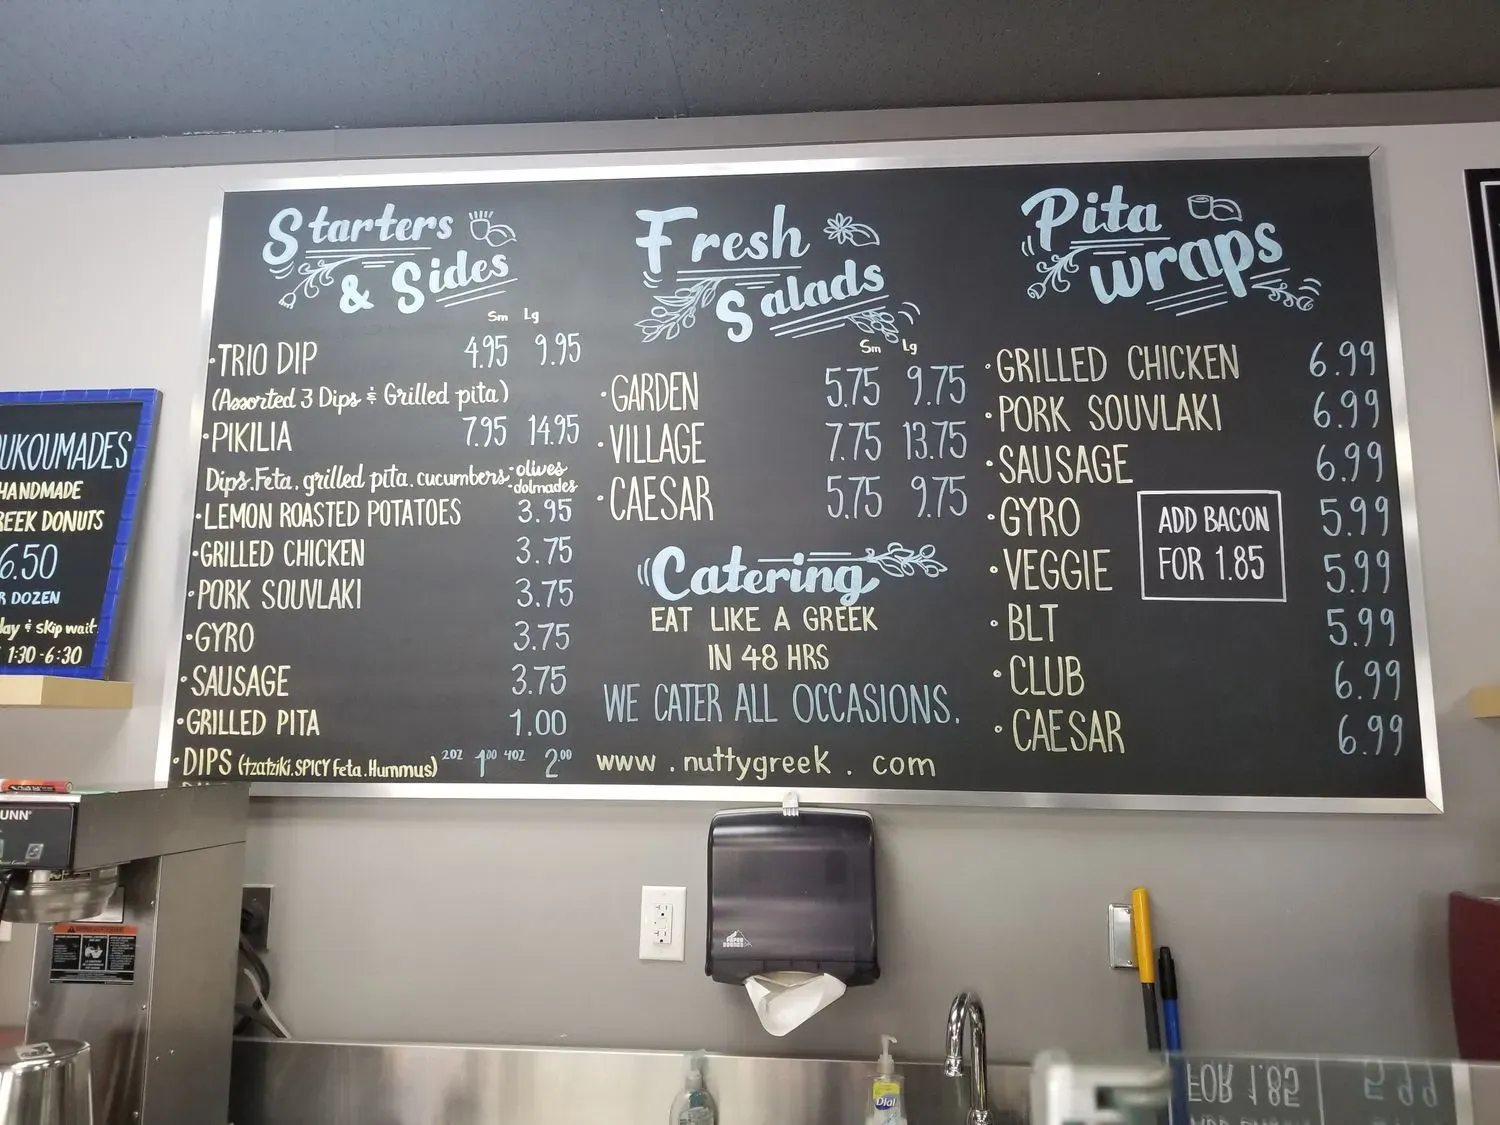 Starters
& Sides
Sm Lg
•TRIO DIP 4.95 9.95
(Assorted 3 Dips & Grilled pita)
•PIKILIA 7.95 14.95
Dips, Feta, grilled pita, cucumbers •olives
•dolmades
•LEMON ROASTED POTATOES 3.95
•GRILLED CHICKEN 3.75
•PORK SOUVLAKI 3.75
•GYRO 3.75
•SAUSAGE 3.75
•GRILLED PITA 1.00
•DIPS (tzatziki, SPICY feta, Hummus) 2OZ 1.00 4OZ 2.00
Fresh
Salads
Sm Lg
•GARDEN 5.75 9.75
•VILLAGE 7.75 13.75
•CAESAR 5.75 9.75
Catering
EAT LIKE A GREEK
IN 48 HRS
WE CATER ALL OCCASIONS.
www.nuttygreek.com
Pita
wraps
•GRILLED CHICKEN 6.99
•PORK SOUVLAKI 6.99
•SAUSAGE 6.99
•GYRO 5.99
•VEGGIE 5.99
•BLT 5.99
•CLUB 6.99
•CAESAR 6.99
ADD BACON
FOR 1.85
OUKOUMADES
HANDMADE
REEK DONUTS
6.50
R DOZEN
& skip wait
1:30-6:30
UNN
Dial
FOR 1.85
5.99